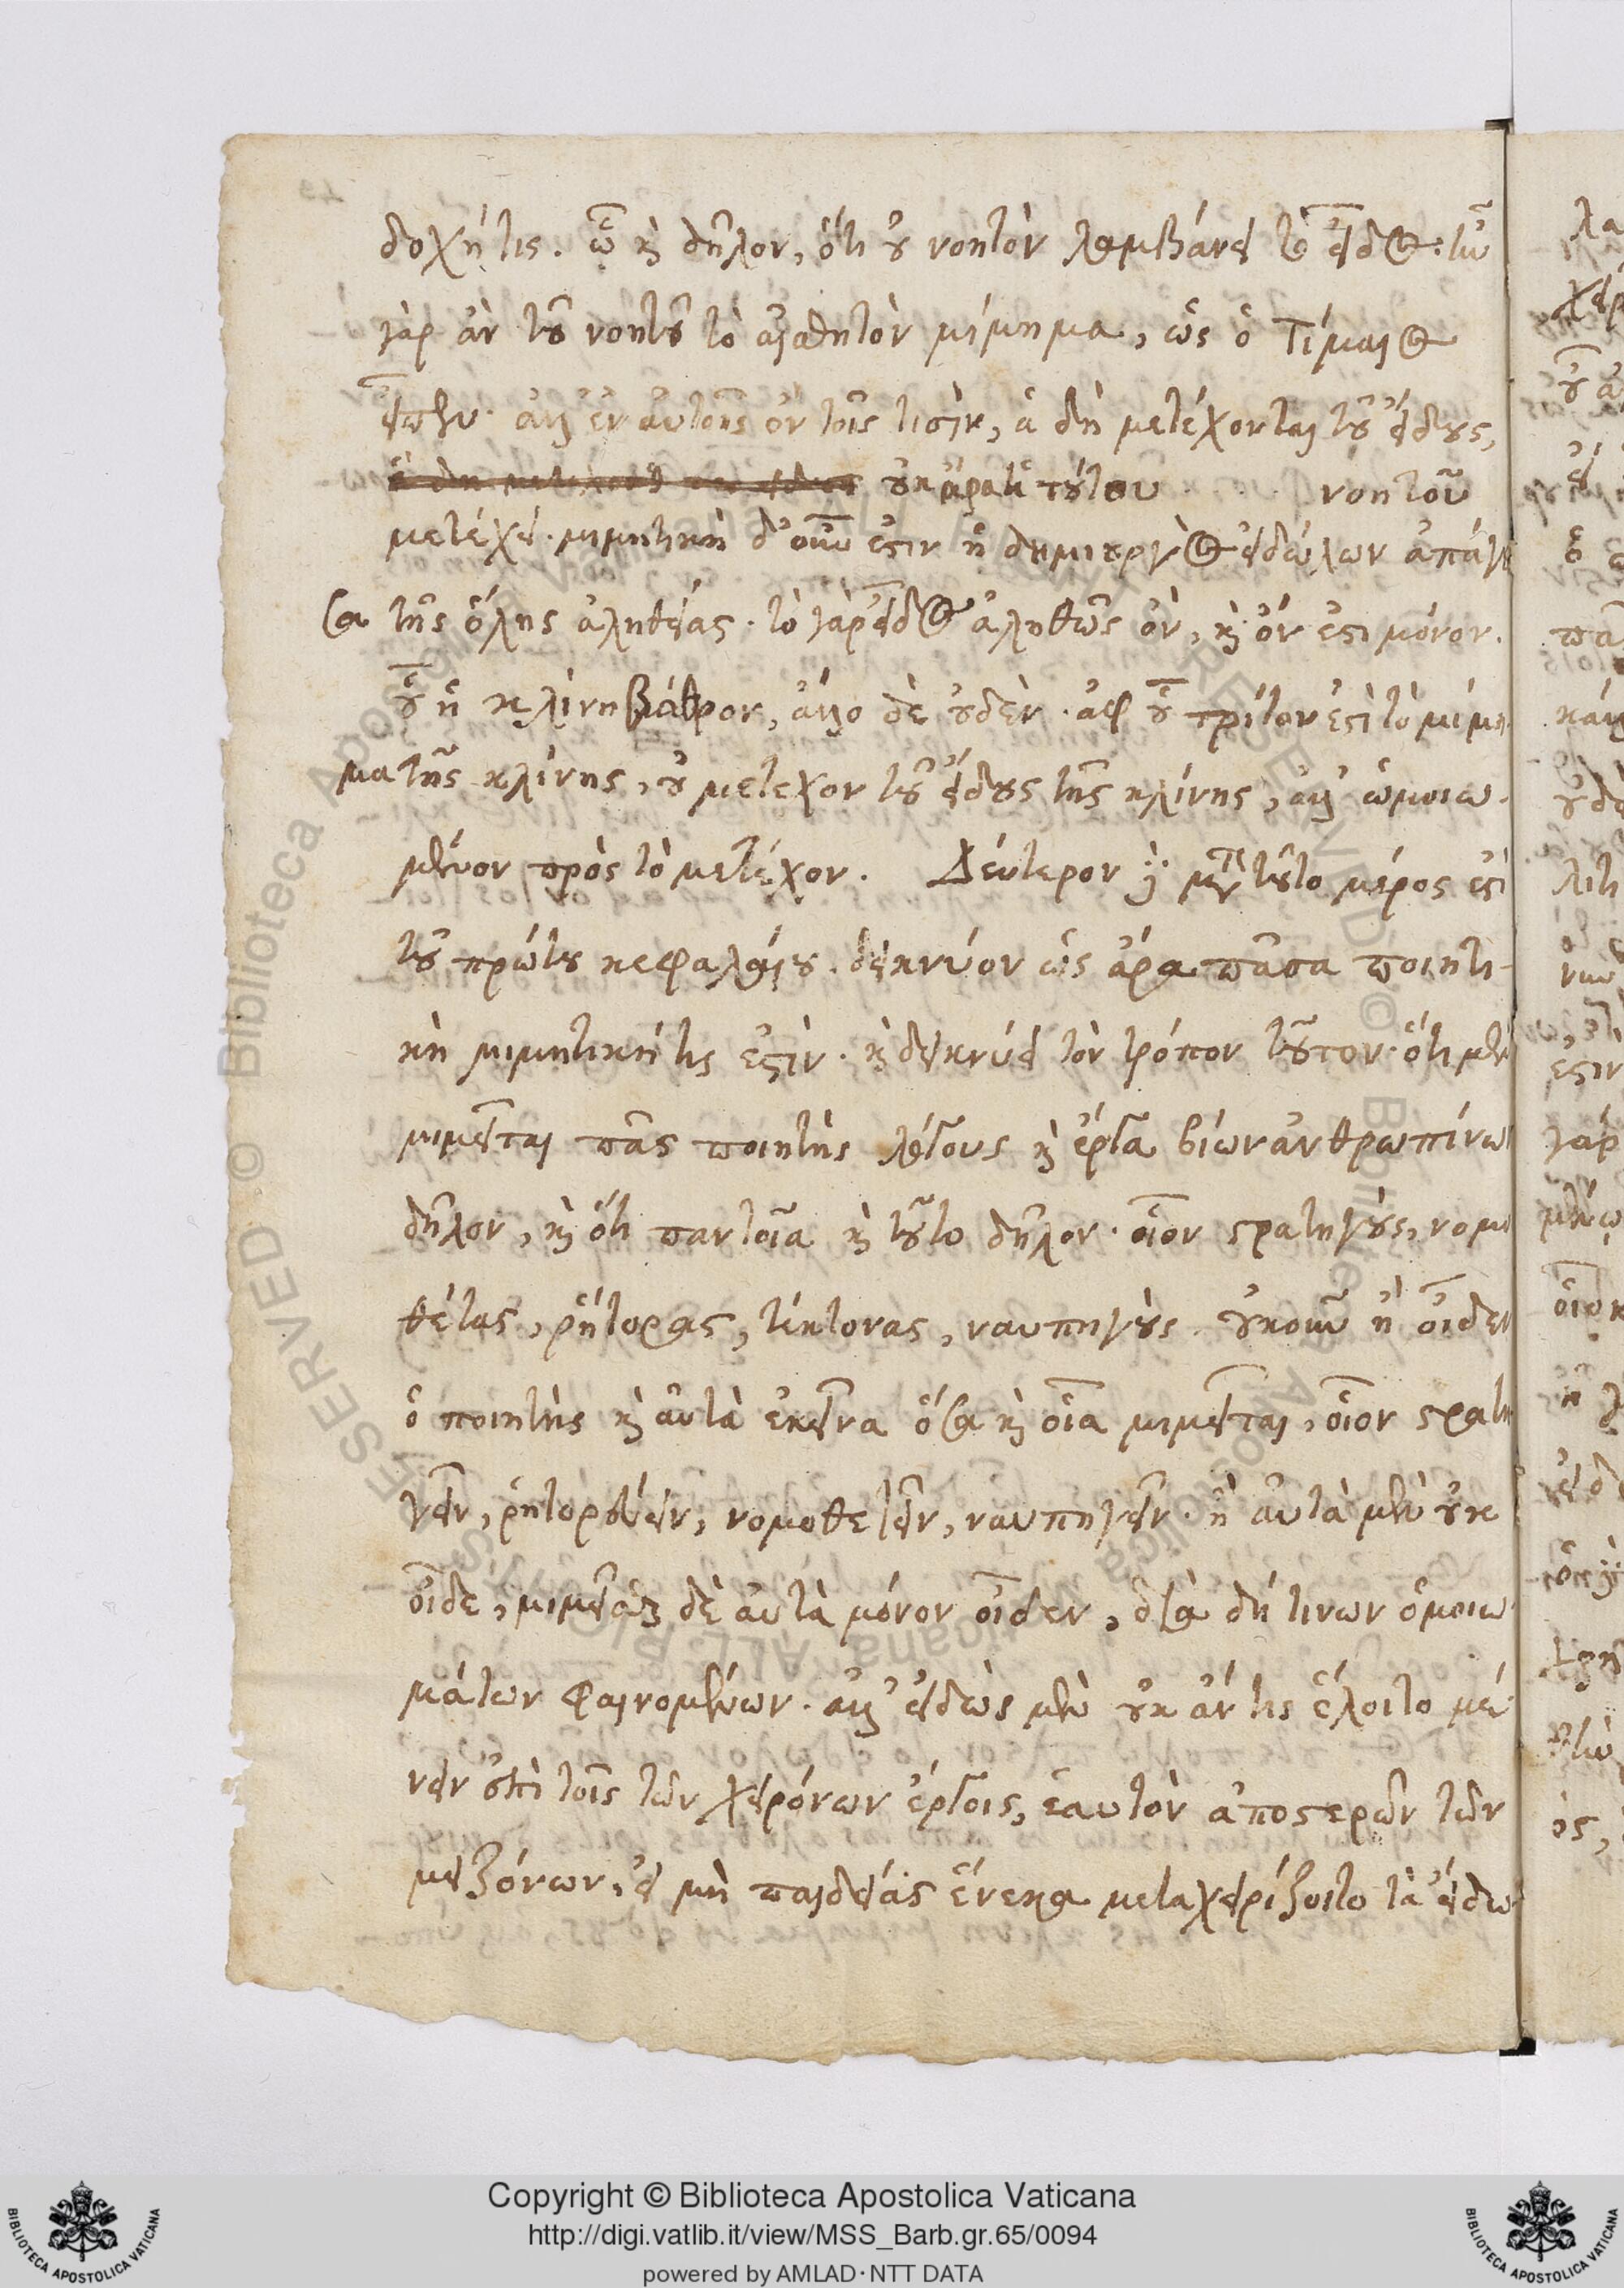 δοχή τις. ᾧ καὶ δῆλον, ὅτι οὐ νοητὸν λαμβάνει τὸ εἶδος: ἦν
γὰρ ἂν τοῦ νοητοῦ τὸ αἰσθητὸν μίμημα, ὡς ὁ Τίμαιος
εἶπεν. ἀλλ' ἐν αὐτοῖς ὂν τοῖς τισὶν, ἃ δὴ μετέχονται τοῦ εἴδους,
οὐκ ἄρα τούτου νοητοῦ
μετέχει. μιμητικὴ δ' οὖν ἐστιν ἡ δημιουργὸς εἰδώλων ἀπάγου
σα τῆς ὅλης ἀληθείας. τὸ γὰρ εἶδος ἀληθῶς ὂν, καὶ ὄν ἐστι μόνον.
οὗ ἡ κλίνη βάθρον, ἄλλο δὲ οὐδὲν. ἀφ' οὗ τρίτον ἐστὶ τὸ μίμη
μα τῆς κλίνης, οὐ μετεχον τοῦ εἴδους τῆς κλίνης, ἀλλ' ὡμοιω-
μένον πρὸς τὸ μετέχον. Δεύτερον δὲ μετὰ τοῦτο μέρος ἐστὶ
τοῦ πρώτου κεφαλαίου. δεικνύον ὡς ἄρα πᾶσα ποιητι-
κὴ μιμητική τις ἐστὶν. καὶ δεικνύει τὸν τρόπον τοῦτον. ὅτι μὲν
μιμεῖται πᾶς ποιητὴς λόγους καὶ ἔργα βίων ἀνθρωπίνων
δῆλον, καὶ ὅτι παντοῖα καὶ τοῦτο δῆλον. οἷον στρατηγοὺς, νομο
θέτας, ῥήτορας, τέκτονας, ναυπηγοὺς. οὐκοῦν ἢ οἶδεν
ὁ ποιητὴς καὶ αὐτὰ ἐκεῖνα ὅσα καὶ οἷα μιμεῖται, οἷον στρατη
γεῖν, ῥητορεύειν, νομοθετεῖν, ναυπηγεῖν. ἢ αὐτὰ μὲν οὐκ
οἶδε, μιμεῖσθαι δὲ αὐτὰ μόνον οἶδεν, ὅσα δή τινων ὁμοιω
μάτων φαινομένων. ἀλλ' εἰδὼς μὲν οὐκ ἄν τις ἕλοιτο μέ
νειν ἐπὶ τοῖς τῶν χειρόνων ἔργοις, ἑαυτὸν ἀποστερῶν τῶν
μειζόνων, εἰ μὴ παιδείας ἕνεκα μεταχειρίζοιτο τὰ εἴδω
Copyright © Biblioteca Apostolica Vaticana
http://digi.vatlib.it/view/MSS_Barb.gr.65/0094
powered by AMLAD·NTT DATA